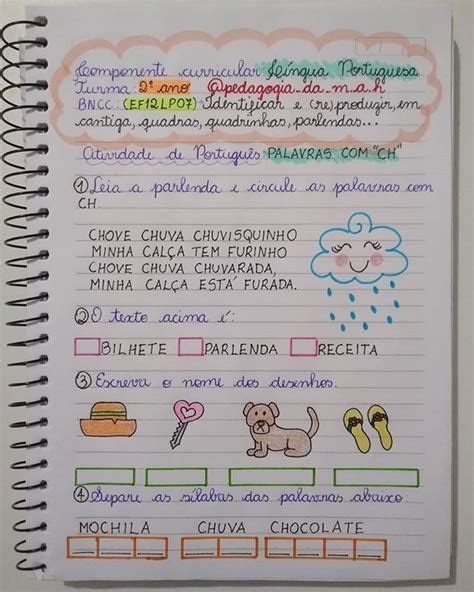 Componente curricular Língua Portuguesa
Turma: 2º ano @pedagogia_da_m.a.h
BNCC: (EF12LP07) Identificar e (re)produzir, em
cantiga, quadras, quadrinhas, parlendas...
Atividade de Português: PALAVRAS COM "CH"
① Leia a parlenda e circule as palavras com
CH.
CHOVE CHUVA CHUVISQUINHO
MINHA CALÇA TEM FURINHO
CHOVE CHUVA CHUVARADA,
MINHA CALÇA ESTÁ FURADA.
② O texto acima é:
BILHETE PARLENDA RECEITA
③ Escreva o nome dos desenhos.
④ Separe as sílabas das palavras abaixo:
MOCHILA CHUVA CHOCOLATE